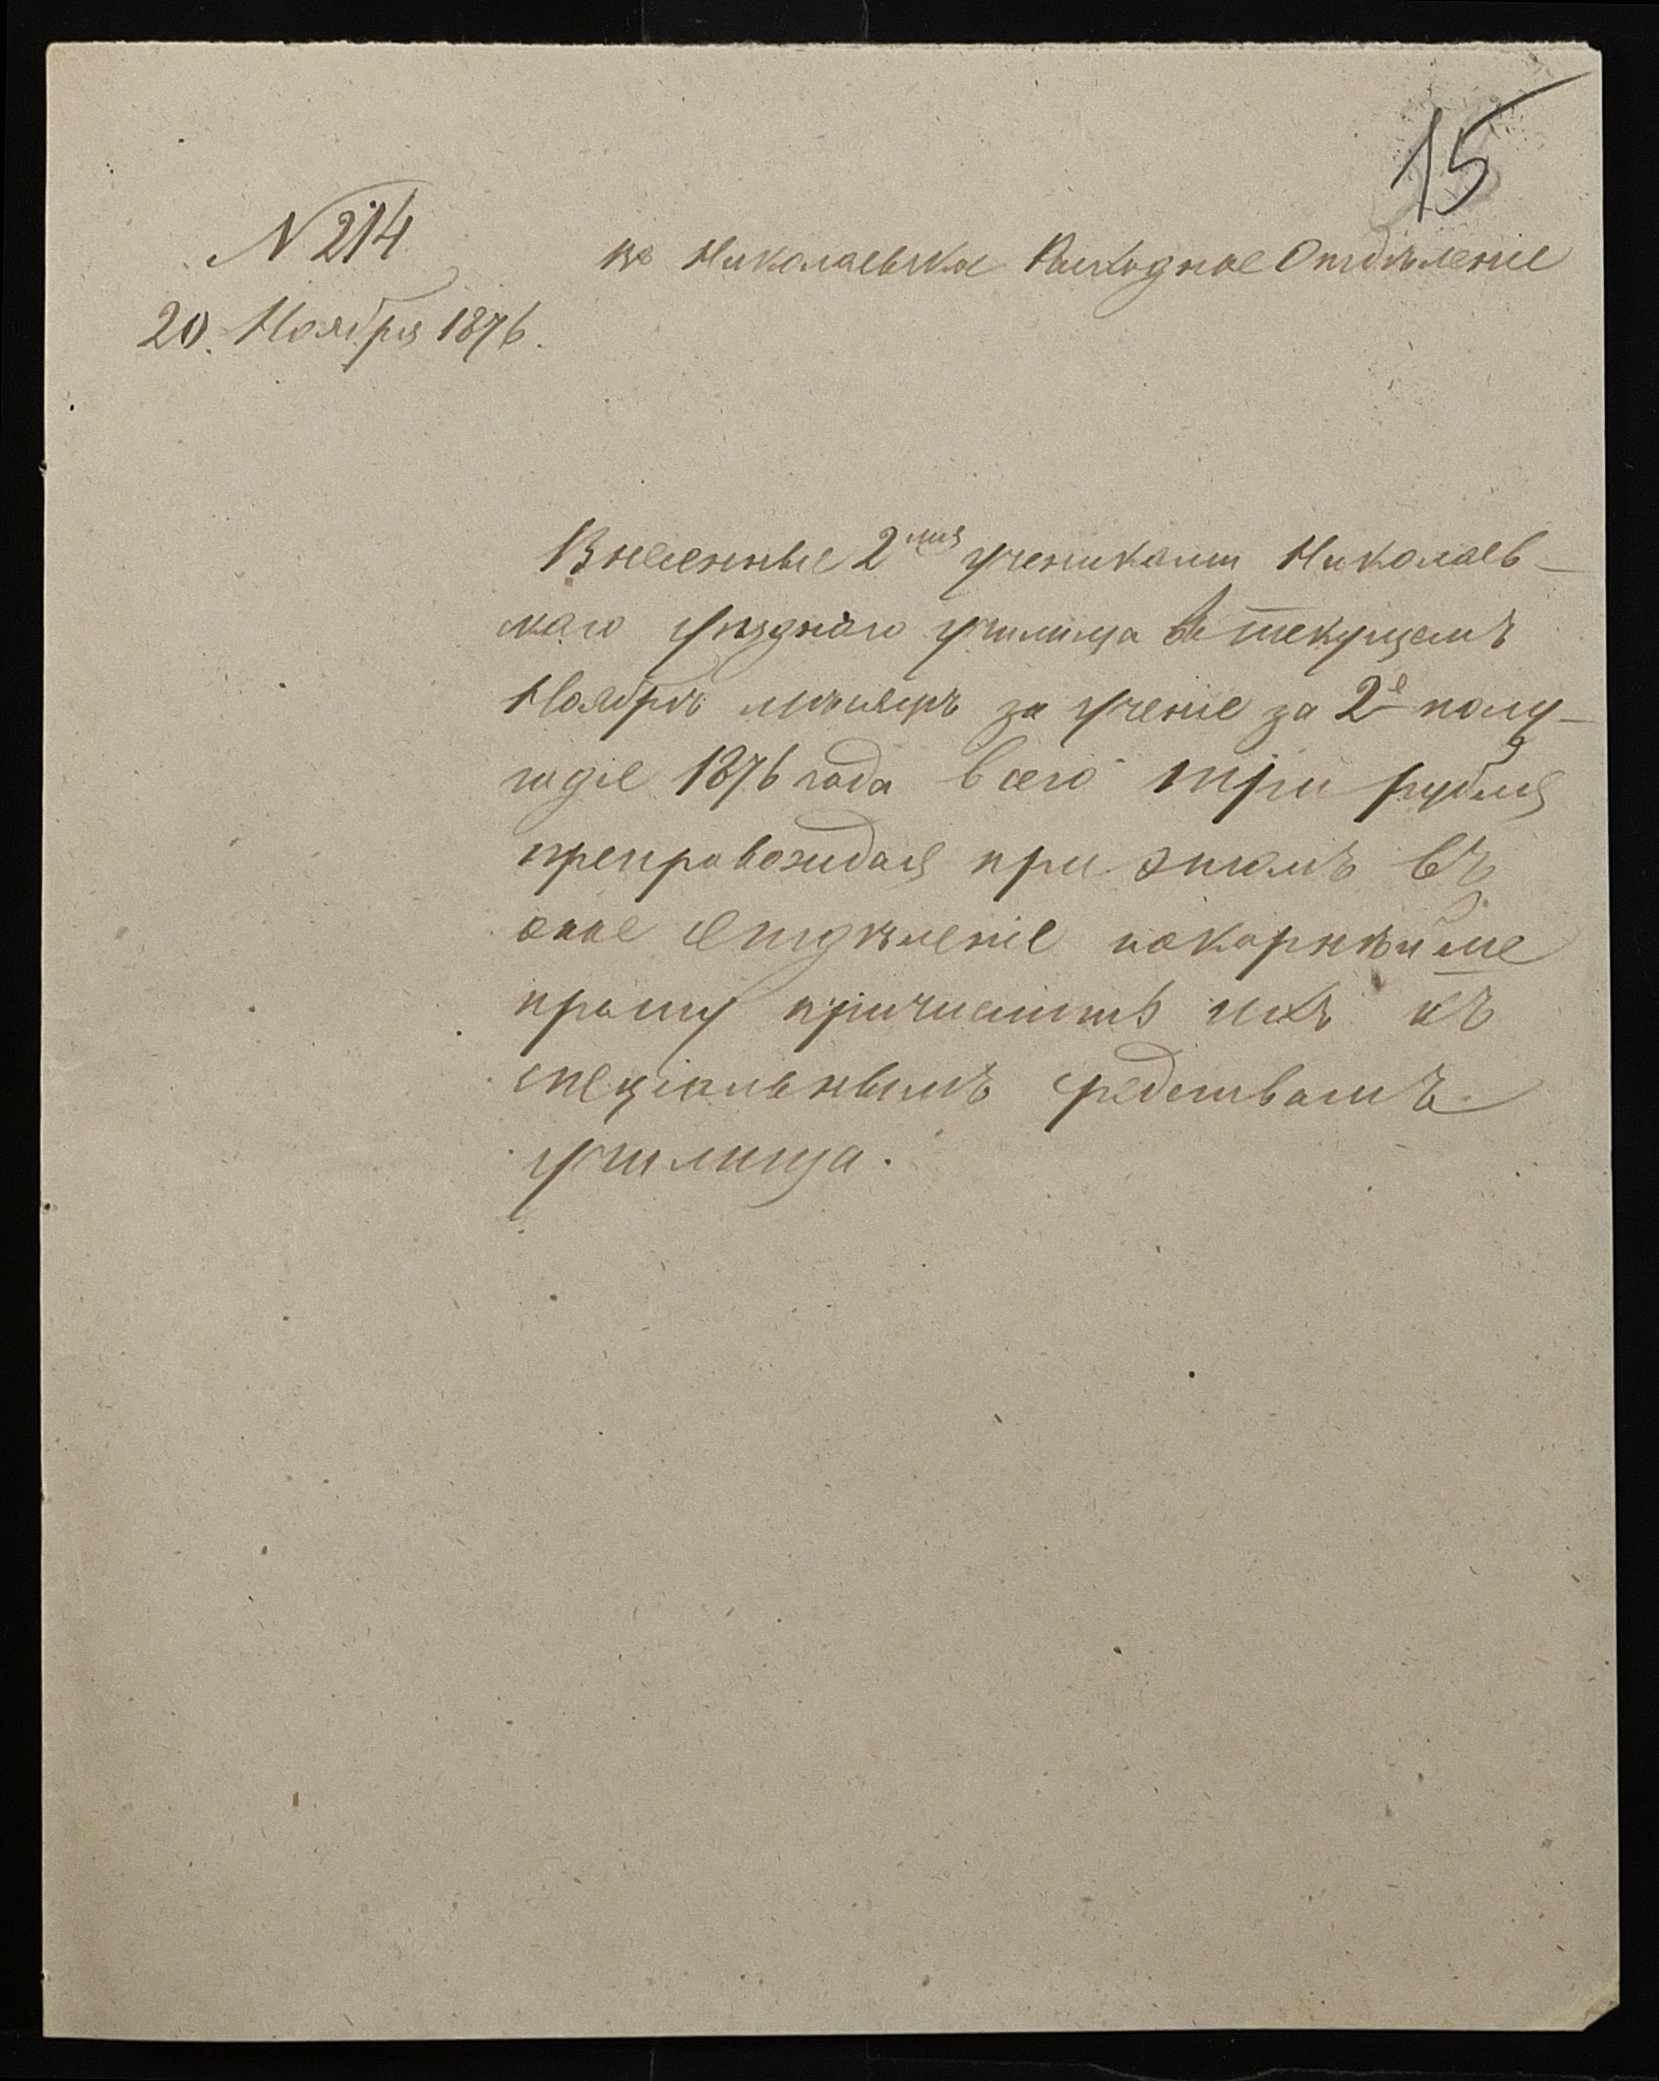 15
N 214
20. Ноября 1876.
въ Николаевское Расходное Отдѣленіе
Внесенные 2мя учениками Николаев-
скаго уѣзднаго училища въ текущемъ
Ноябрѣ мѣсяцѣ за ученіе за 2е полу-
годіе 1876 года всего три рубля
препровождая при этомъ въ
оное Отдѣленіе покорнѣйше
прошу причислить ихъ къ
спеціальнымъ средствамъ
училища.